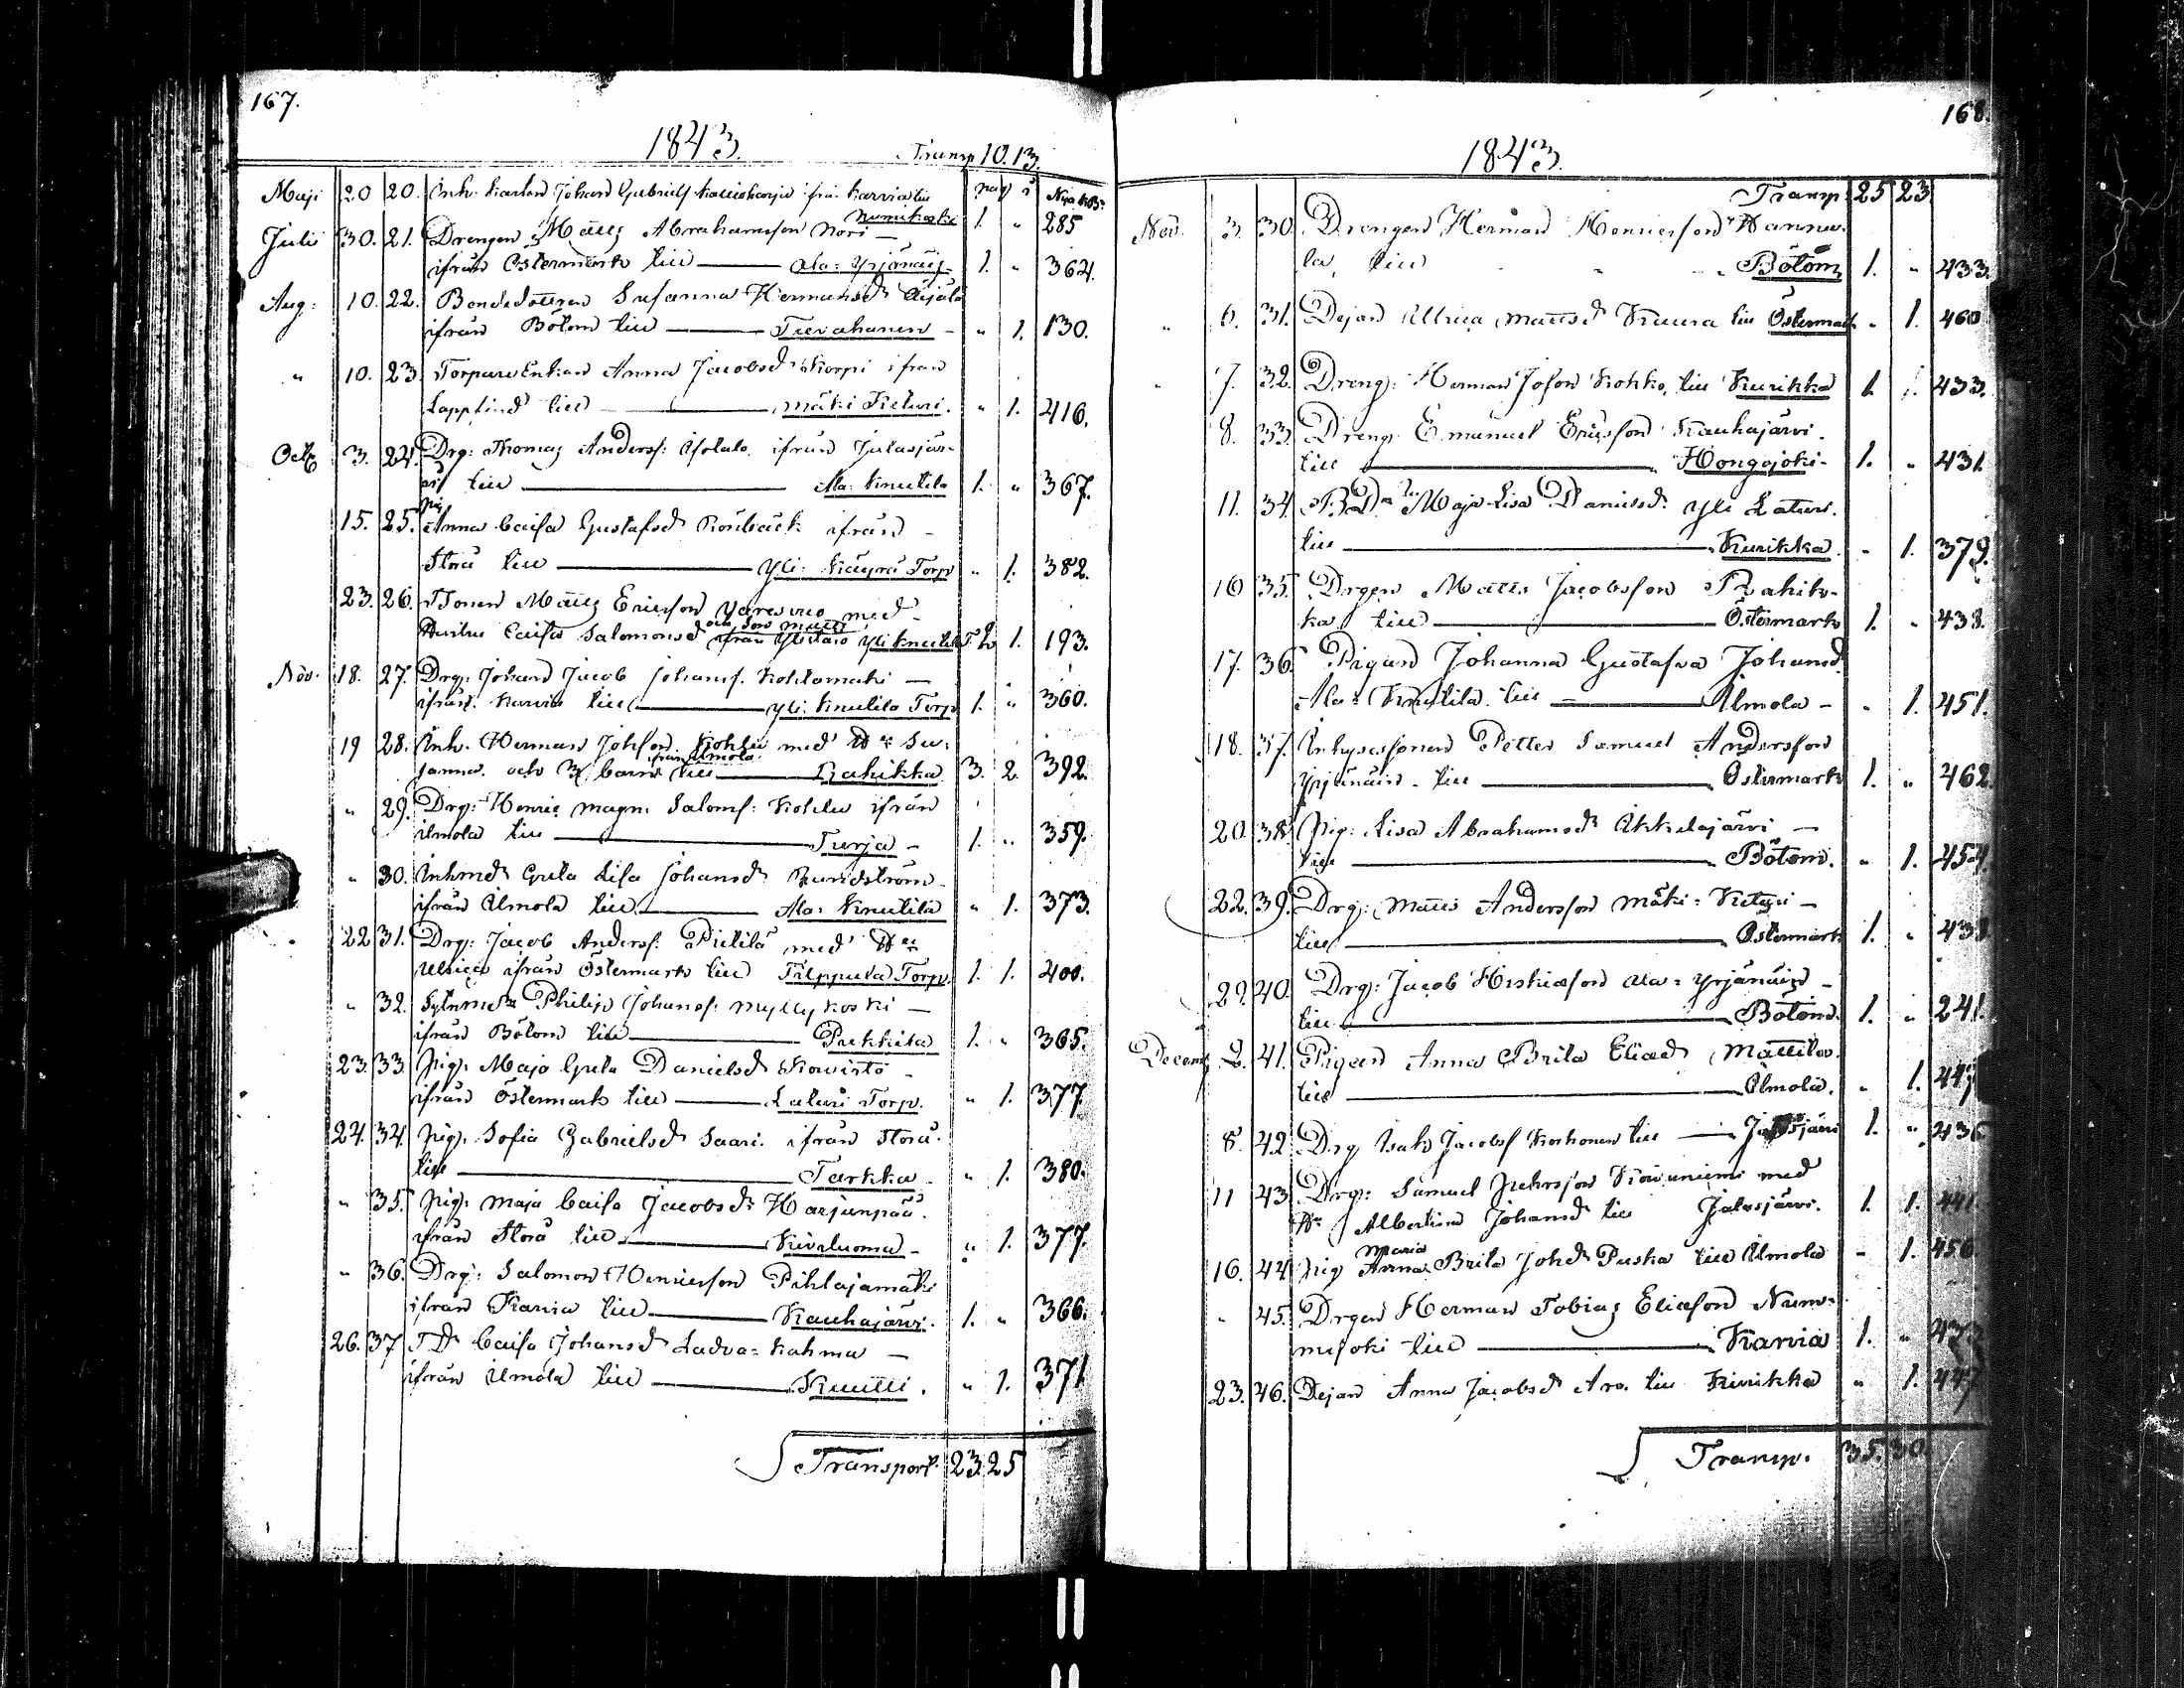 167.
1843.
Transp 10. 13.
Maji 20 20. Inh. Karlen Johan Gabriels från Karvia till
Nummikoski 1. " 285
Julii 30. 21. Drengen Matts Abrahamsson Nori —
ifrån Östermark till — Ala-Yrjänäis 1. " 364.
Aug: 10. 22. Bondedottren Susanna Hermansdr Äijälä
ifrån Bötom till — - " 1. 130.
" 10. 23. Torpare Enkan Anna Jacobsdr Korpi ifrån
Lappfjerd till — Mäki Keturi. " 1. 416.
Octb 3. 24. Drg: Thomas Andersf: ifrån Jalasjär-
vi till — Ala: Knuutila 1. " 367.
15. 25. Pig. Anna Caisa Gustafsdr Rönbäck ifrån -
Storå till — Yli: Käyrä Torp " 1. 382.
23. 26. Bonen Matts Ericsson med
och son Matts
Hustru Caisa Salomonsdr ifrån Ylistaro Yli Knuutila T. 2. 1. 193.
Nov. 18. 27. Drg: Johan Jacob Johansf. Kohtamäki —
ifrån Karvia till — Yli: Knuutila Torp 1. " 360.
19 28. Inh. Herman Johsson Kohlu med H:u Su-
ifrån Ilmola
sanna och 3 barn till — Rahikka 3. 2. 392.
" 29. Drg: Henric Magn: Salomf: Kohlu ifrån
Ilmola till — Turja - 1. " 359.
" 30. Inhmdr Greta Lisa Johansdr Rundström
ifrån Ilmola till — Ala: Knuutila " 1. 373.
22 31. Drg: Jacob Andersf: Pietilä med H:u
Ulrica ifrån Östermark till Filppula Torp. 1. 1. 400.
" 32. Philip Johansf: Myllykoski —
ifrån Bötom till — Pukkila 1. " 365.
23. 33. Pig. Maja Greta Danielsdr Koivisto -
ifrån Östermark till — Laturi Torp. " 1. 377
24. 34. Pig. Sofia Gabrielsdr Saari ifrån Storå
till — Tarkka - " 1. 380.
" 35. Pig. Maja Caisa Jacobsdr Harjunpää.
ifrån Storå till — Kivaluoma - " 1. 377.
" 36. Drg: Salomon Henricsson Pihlajamäki
ifrån Karvia till — Kauhajärvi. 1. " 366.
26. 37 T Dr Caisa Johansdr Ladva-Kahma —
ifrån Ilmola till — Knuutti. " 1. 371
Transport. 23 25
168.
1843.
Transp. 25 23
Nov. 3. 30. Drengen Herman Henricsson Hannu-
la, till " " Bötom 1. " 433.
" 6. 31. Dejan Ullrica Mattsdr Kuura till Östermark - 1. 460
" 7. 32. Dreng: Herman Josson Kohko, till Kurikka 1. " 433.
8. 33 Dreng Emanuel Ericsson Kauhajärvi.
till — Hongojoki - 1. " 431.
11. 34. B Dr Maja Lisa Danielsdr Yli Laturi.
till — Kurikka. - 1. 379.
16 35. Drgen Matts Jacobsson Rahik-
ka till — Östermark 1. " 438.
17. 36. Pigan Johanna Gustafva Johansd.
Ala-Knuutila till — Ilmola - " 1. 451.
18. 37. Inhysessonen Petter Samuel Andersson
Yrjänäin till — Östermark 1. " 462
20. 38. Pig: Lisa Abrahamsdr Ikkelajärvi —
till — Bötom. " 1. 454.
22. 39. Drg: Matts Andersson Mäki-Keturi -
till — Östermark 1. " 438.
29. 40. Drg: Jacob Hiskiasson Ala-Yrjänäin -
till — Bötom. 1. " 241.
Decemb 2. 41. Pigan Anna Brita Eliædr Mattila.
till — Ilmola. " 1. 447
8. 42. Drg Isak Jacobsf Korhonen till — Jalasjärvi 1. " 436
11 43. Drg: Samuel Koivuniemi med
H:u Albertina Johansdr till Jalasjärvi. 1. 1. 441.
Maria
16. 44. Pig Anna Brita Johdr Puska till Ilmola - 1. 456
" 45. Drgen Herman Tobias Eliasson Num-
mijoki till — Karvia 1. " 473
23. 46. Dejan Anna Jacobsdr Aro till Kurikka " 1. 447
Transp. 35. 30.